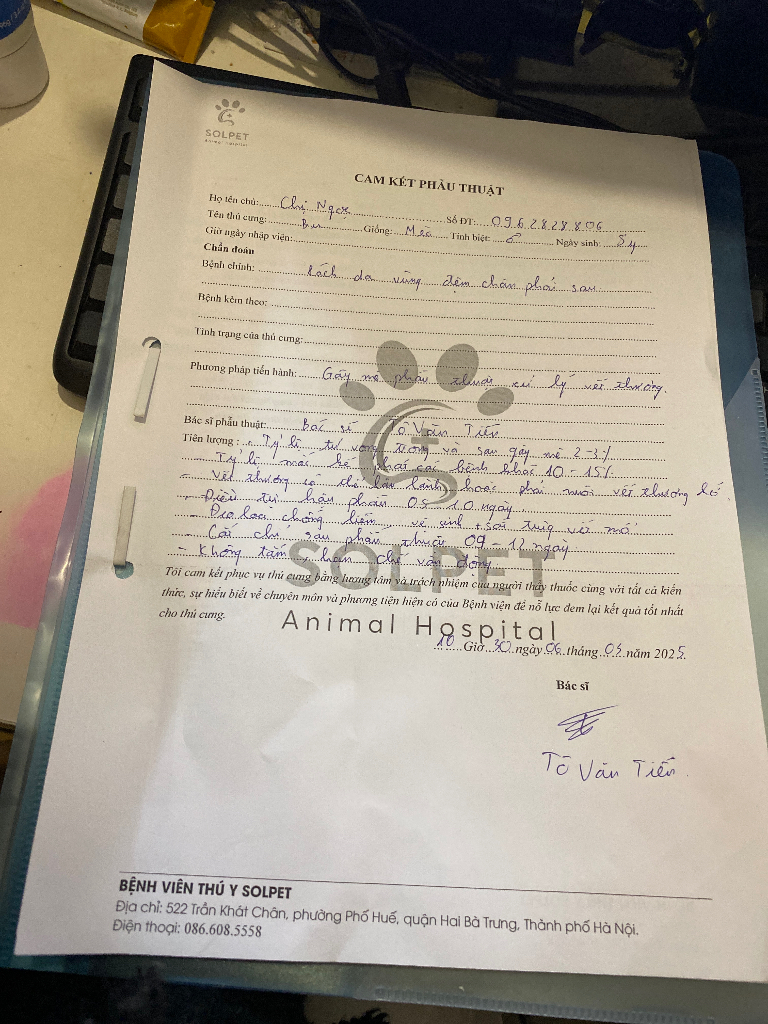 SOLPET
Animal Hospital
CAM KẾT PHẪU THUẬT
Họ tên chủ: Chị Ngọc Số ĐT: 0962828806
Tên thú cưng: Bu Giống: Mèo Tính biệt: ♂ Ngày sinh: 5y
Giờ ngày nhập viện:
Chẩn đoán
Bệnh chính: Rách da vùng đệm chân phải sau
Bệnh kèm theo:
Tình trạng của thú cưng:
Phương pháp tiến hành: Gây mê phẫu thuật xử lý vết thương.
Bác sĩ phẫu thuật: Bác sĩ Tô Văn Tiến
Tiên lượng : - Tỷ lệ tử vong trong và sau gây mê 2-3%
- Tỷ lệ mắc kế phát các bệnh khác 10-15%
- Vết thương có thể lâu lành hoặc phải nuôi vết thương hở.
- Điều trị hậu phẫu 05-10 ngày
- Đeo loa chống liếm, vệ sinh + sát trùng vết mổ
- Cắt chỉ sau phẫu thuật 09-12 ngày
- Không tắm, hạn chế vận động
SOLPET
Tôi cam kết phục vụ thú cưng bằng lương tâm và trách nhiệm của người thầy thuốc cùng với tất cả kiến
thức, sự hiểu biết về chuyên môn và phương tiện hiện có của Bệnh viện để nỗ lực đem lại kết quả tốt nhất
cho thú cưng.
Animal Hospital
10 Giờ 30 ngày 06 tháng 05 năm 2025
Bác sĩ
Tô Văn Tiến
BỆNH VIÊN THÚ Y SOLPET
Địa chỉ: 522 Trần Khát Chân, phường Phố Huế, quận Hai Bà Trưng, Thành phố Hà Nội.
Điện thoại: 086.608.5558